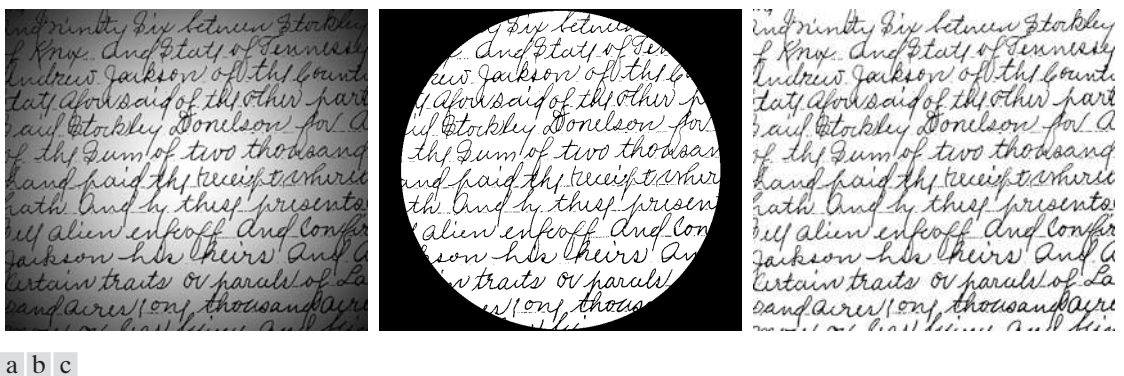 and Ninety Six between Stockley
of Knox and State of Tennessee
Andrew Jackson of the County
tate aforesaid of the other part
said Stockley Donelson for a
of the Sum of two thousand
hand paid the receipt where
hath and by these presents
ell alien enfeoff and Confir
Jackson his heirs and a
Certain traits or parcels of La
sand acres one thousand acre
y Six between
and State of Ten
rew Jackson of the Co
aforesaid of the other p
aid Stockley Donelson for
the Sum of two thousan
and paid the receipt wher
th and by these present
alien enfeoff and Con
kson his heirs an
n traits or parcels
es one thousa
and Ninety Six between Stockley
of Knox and State of Tennessee
Andrew Jackson of the County
tate aforesaid of the other part
said Stockley Donelson for a
of the Sum of two thousand
hand paid the receipt where
hath and by these presents
ell alien enfeoff and Confir
Jackson his heirs and a
Certain traits or parcels of La
sand acres one thousand acre
a b c